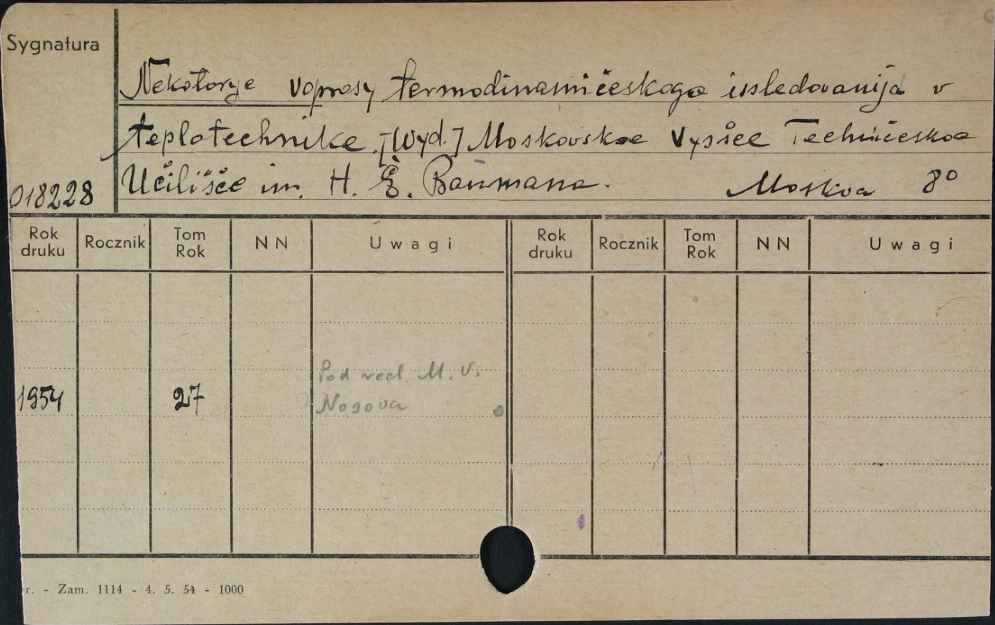 Sygnatura
Nekotorye voprosy termodinamičeskogo issledovanija v
teplotechnike. [Wyd.] Moskovskoe Vysšee Techničeskoe
018228 Učilišče im. H. È. Baumana. Moskva 8°
Rok druku Rocznik Tom Rok NN Uwagi Rok druku Rocznik Tom Rok NN Uwagi
Pod red M. V.
1954 27 Nosova
r. - Zam. 1114 - 4. 5. 54 - 1000